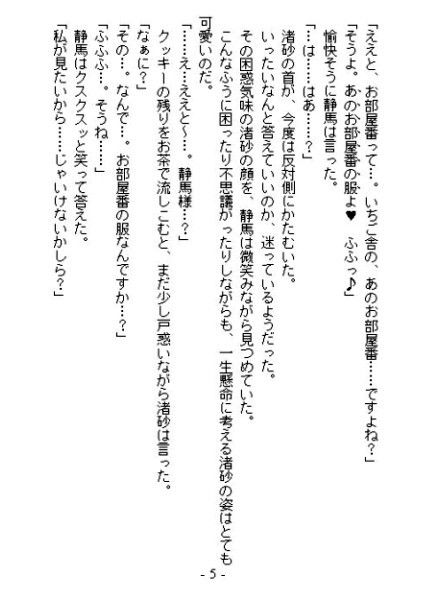 「ええと、お部屋番って…。いちご舎の、あのお部屋番……ですよね?」
「そうよ。あのお部屋番の服よ♥　ふふっ♪」
　愉快そうに静馬は言った。
「……は……はあ……?」
　渚砂の首が、今度は反対側にかたむいた。
　いったいなんと答えていいのか、迷っているようだった。
　その困惑気味の渚砂の顔を、静馬は微笑みながら見つめていた。
　こんなふうに困ったり不思議がったりしながらも、一生懸命に考える渚砂の姿はとても
可愛いのだ。
「……え…ええと〜…。静馬様…?」
　クッキーの残りをお茶で流しこむと、まだ少し戸惑いながら渚砂は言った。
「なぁに?」
「その…。なんで…。お部屋番の服なんですか…?」
「ふふふ…。そうね……」
　静馬はクスクスッと笑って答えた。
「私が見たいから……じゃいけないかしら?」
- 5 -